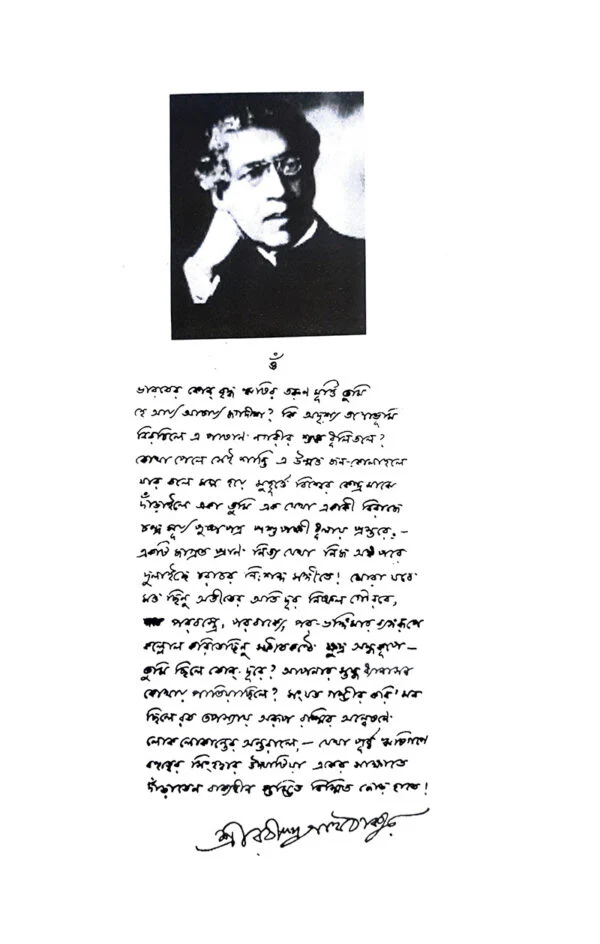 ওঁ
ভারতের কোন বৃদ্ধ ঋষির তরুণ মূর্তি তুমি
হে আর্য্য আচার্য্য জগদীশ? কি অদৃশ্য তপোভূমি
বিরচিলে এ পাষাণ নগরীর শুষ্ক ধূলিতলে?
কোথা পেলে সেই শান্তি এ উন্মত্ত জন-কোলাহলে
যার তলে মগ্ন হয়ে মুহূর্ত্তে বিশ্বের কেন্দ্র মাঝে
দাঁড়াইলে একা তুমি এক যেথা একাকী বিরাজে
সূর্য্য চন্দ্র পুষ্পপত্র পশুপক্ষী ধূলায় প্রস্তরে,–
একটি জাগ্রত প্রাণ নিত্য যেথা নিজ অঙ্ক পরে
দুলাইছে চরাচর নিঃশব্দ সঙ্গীতে! মোরা যবে
মত্ত ছিনু অতীতের অতি দূর নিষ্ফল গৌরবে,
পরবস্ত্রে, পরবাক্যে, পর-ভঙ্গিমার ব্যঙ্গরূপে
কল্লোল করিতেছিনু স্ফীতকণ্ঠে ক্ষুদ্র অন্ধকূপে–
তুমি ছিলে কোন্ দূরে? আপনার স্তব্ধ ধ্যানাসন
কোথায় পাতিয়াছিলে? সংযত গম্ভীর করি মন
ছিলে রত তপস্যায় অরূপ রশ্মির অন্বেষণে
লোক লোকান্তের অন্তরালে,– যেথা পূর্ব্ব ঋষিগণে
বহুত্বের সিংহদ্বার উদ্ঘাটিয়া একের সাক্ষাতে
দাঁড়াতেন বাক্যহীন স্তম্ভিত বিস্মিত জোড় হাতে!
শ্রীরবীন্দ্রনাথ ঠাকুর